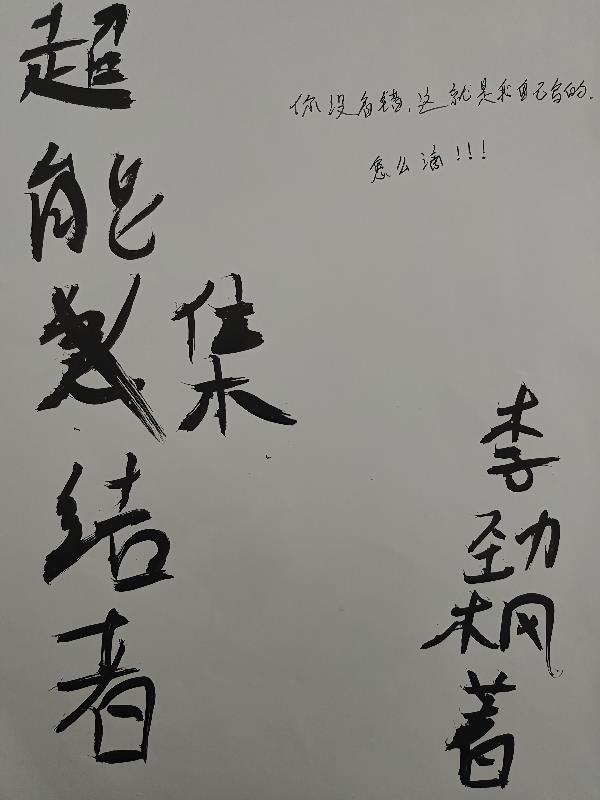 你没看错,这就是我自己写的.
怎么滴!!!
超能集结者
李劲枫著